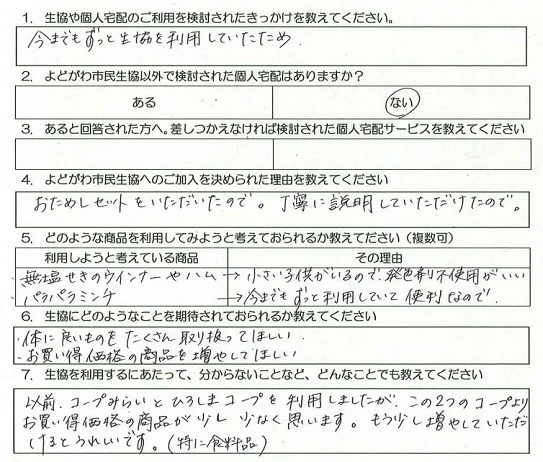 1. 生協や個人宅配のご利用を検討されたきっかけを教えてください。
今までもずっと生協を利用していたため
2. よどがわ市民生協以外で検討された個人宅配はありますか？
ある ない
3. あると回答された方へ。差しつかえなければ検討された個人宅配サービスを教えてください
4. よどがわ市民生協へのご加入を決められた理由を教えてください
おためしセットをいただいたので。丁寧に説明していただけたので。
5. どのような商品を利用してみようと考えておられるか教えてださい（複数可）
利用しようと考えている商品 その理由
・無塩せきのウインナーやハム → 小さい子供がいるので、発色剤不使用がいい
・パラパラミンチ → 今までもずっと利用していて便利なので
6. 生協にどのようなことを期待されておられるか教えてください
・体に良いものをたくさん取り扱ってほしい
・お買い得価格の商品を増やしてほしい
7. 生協を利用するにあたって、分からないことなど、どんなことでも教えてください
以前、コープみらいとひろしまコープを利用しましたが、この2つのコープより
お買い得価格の商品が少し少なく思います。もう少し増やしていただ
けるとうれしいです。（特に食料品）